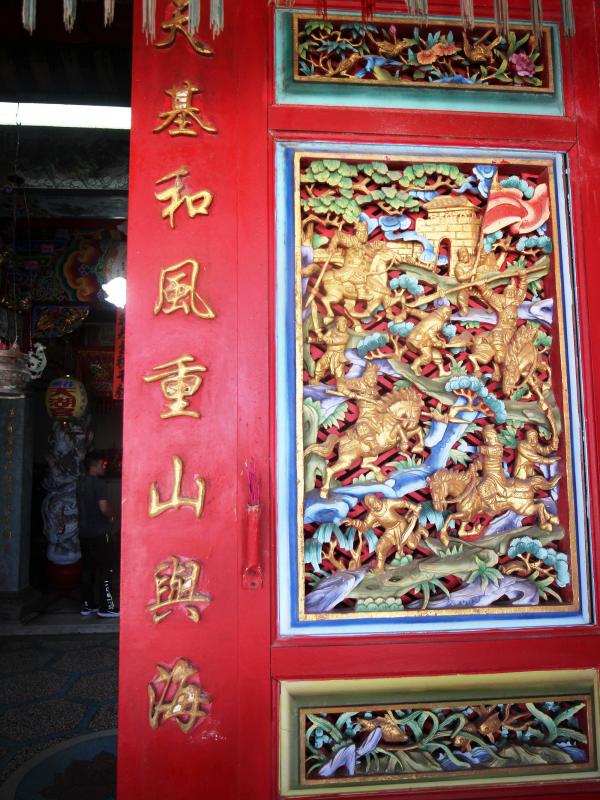 天基和風重山與海